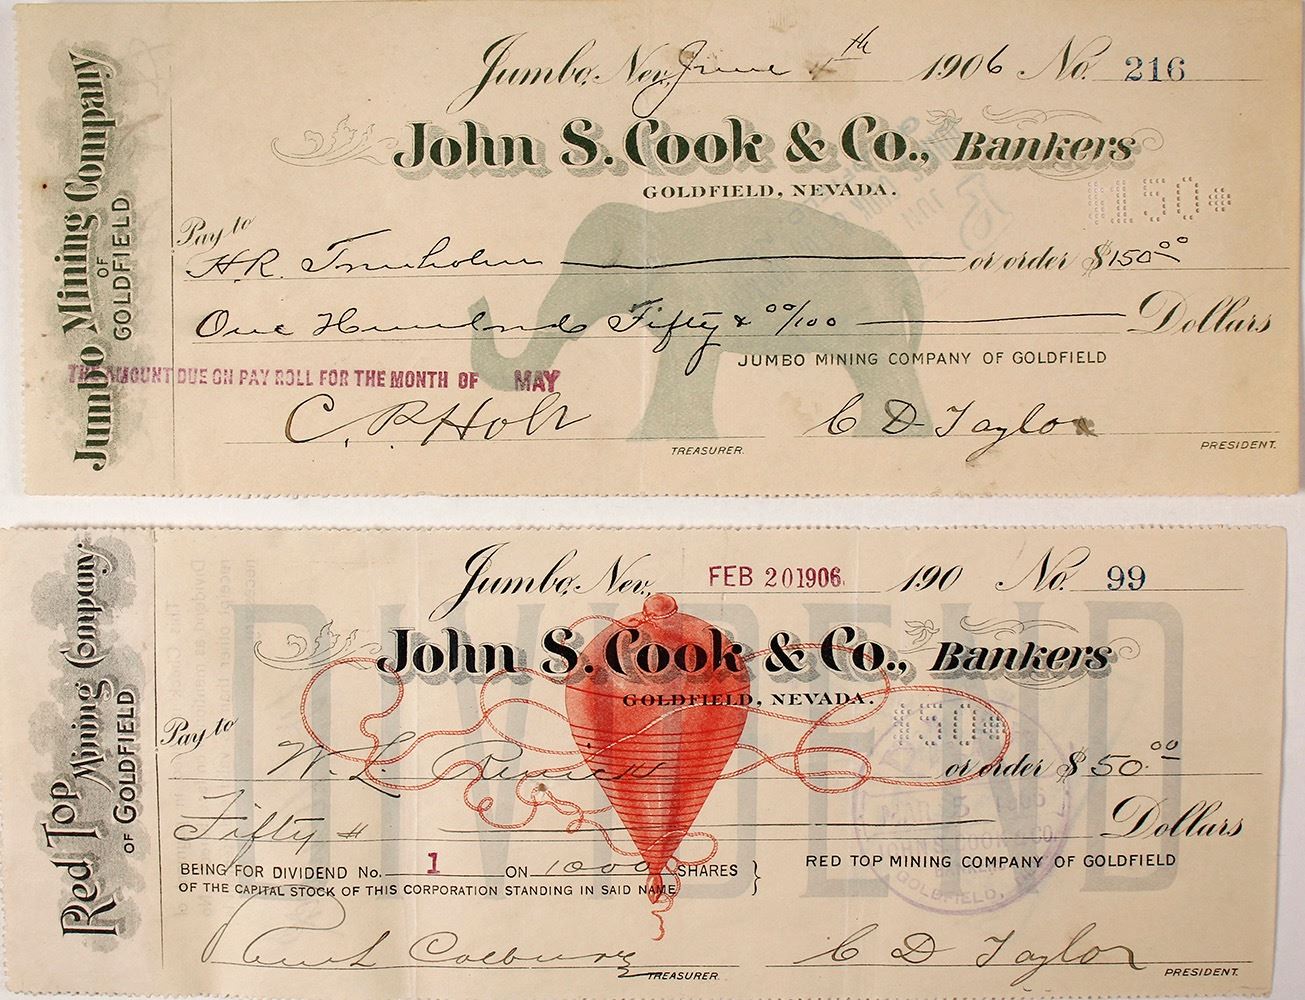 Jumbo Mining Company
OF
GOLDFIELD
Jumbo, Nev. June th 1906 No. 216
John S. Cook & Co., Bankers
GOLDFIELD, NEVADA.
$150
Pay to
H.R. or order $150 00
One Hundred Fifty & 00/100 Dollars
JUMBO MINING COMPANY OF GOLDFIELD
THE AMOUNT DUE ON PAY ROLL FOR THE MONTH OF MAY
C. R. Holt C D Taylor
TREASURER. PRESIDENT.
Red Top Mining Company
OF GOLDFIELD
Jumbo, Nev., FEB 20 1906. 190 No. 99
DIVIDEND
John S. Cook & Co., Bankers
GOLDFIELD, NEVADA.
$50
Pay to
W. L. or order $ 50.00
Fifty Dollars
BEING FOR DIVIDEND No. 1 ON 1000 SHARES
OF THE CAPITAL STOCK OF THIS CORPORATION STANDING IN SAID NAME
RED TOP MINING COMPANY OF GOLDFIELD
MAR 5 1906
JOHN S. COOK & CO.
GOLDFIELD,
C D Taylor
TREASURER. PRESIDENT.